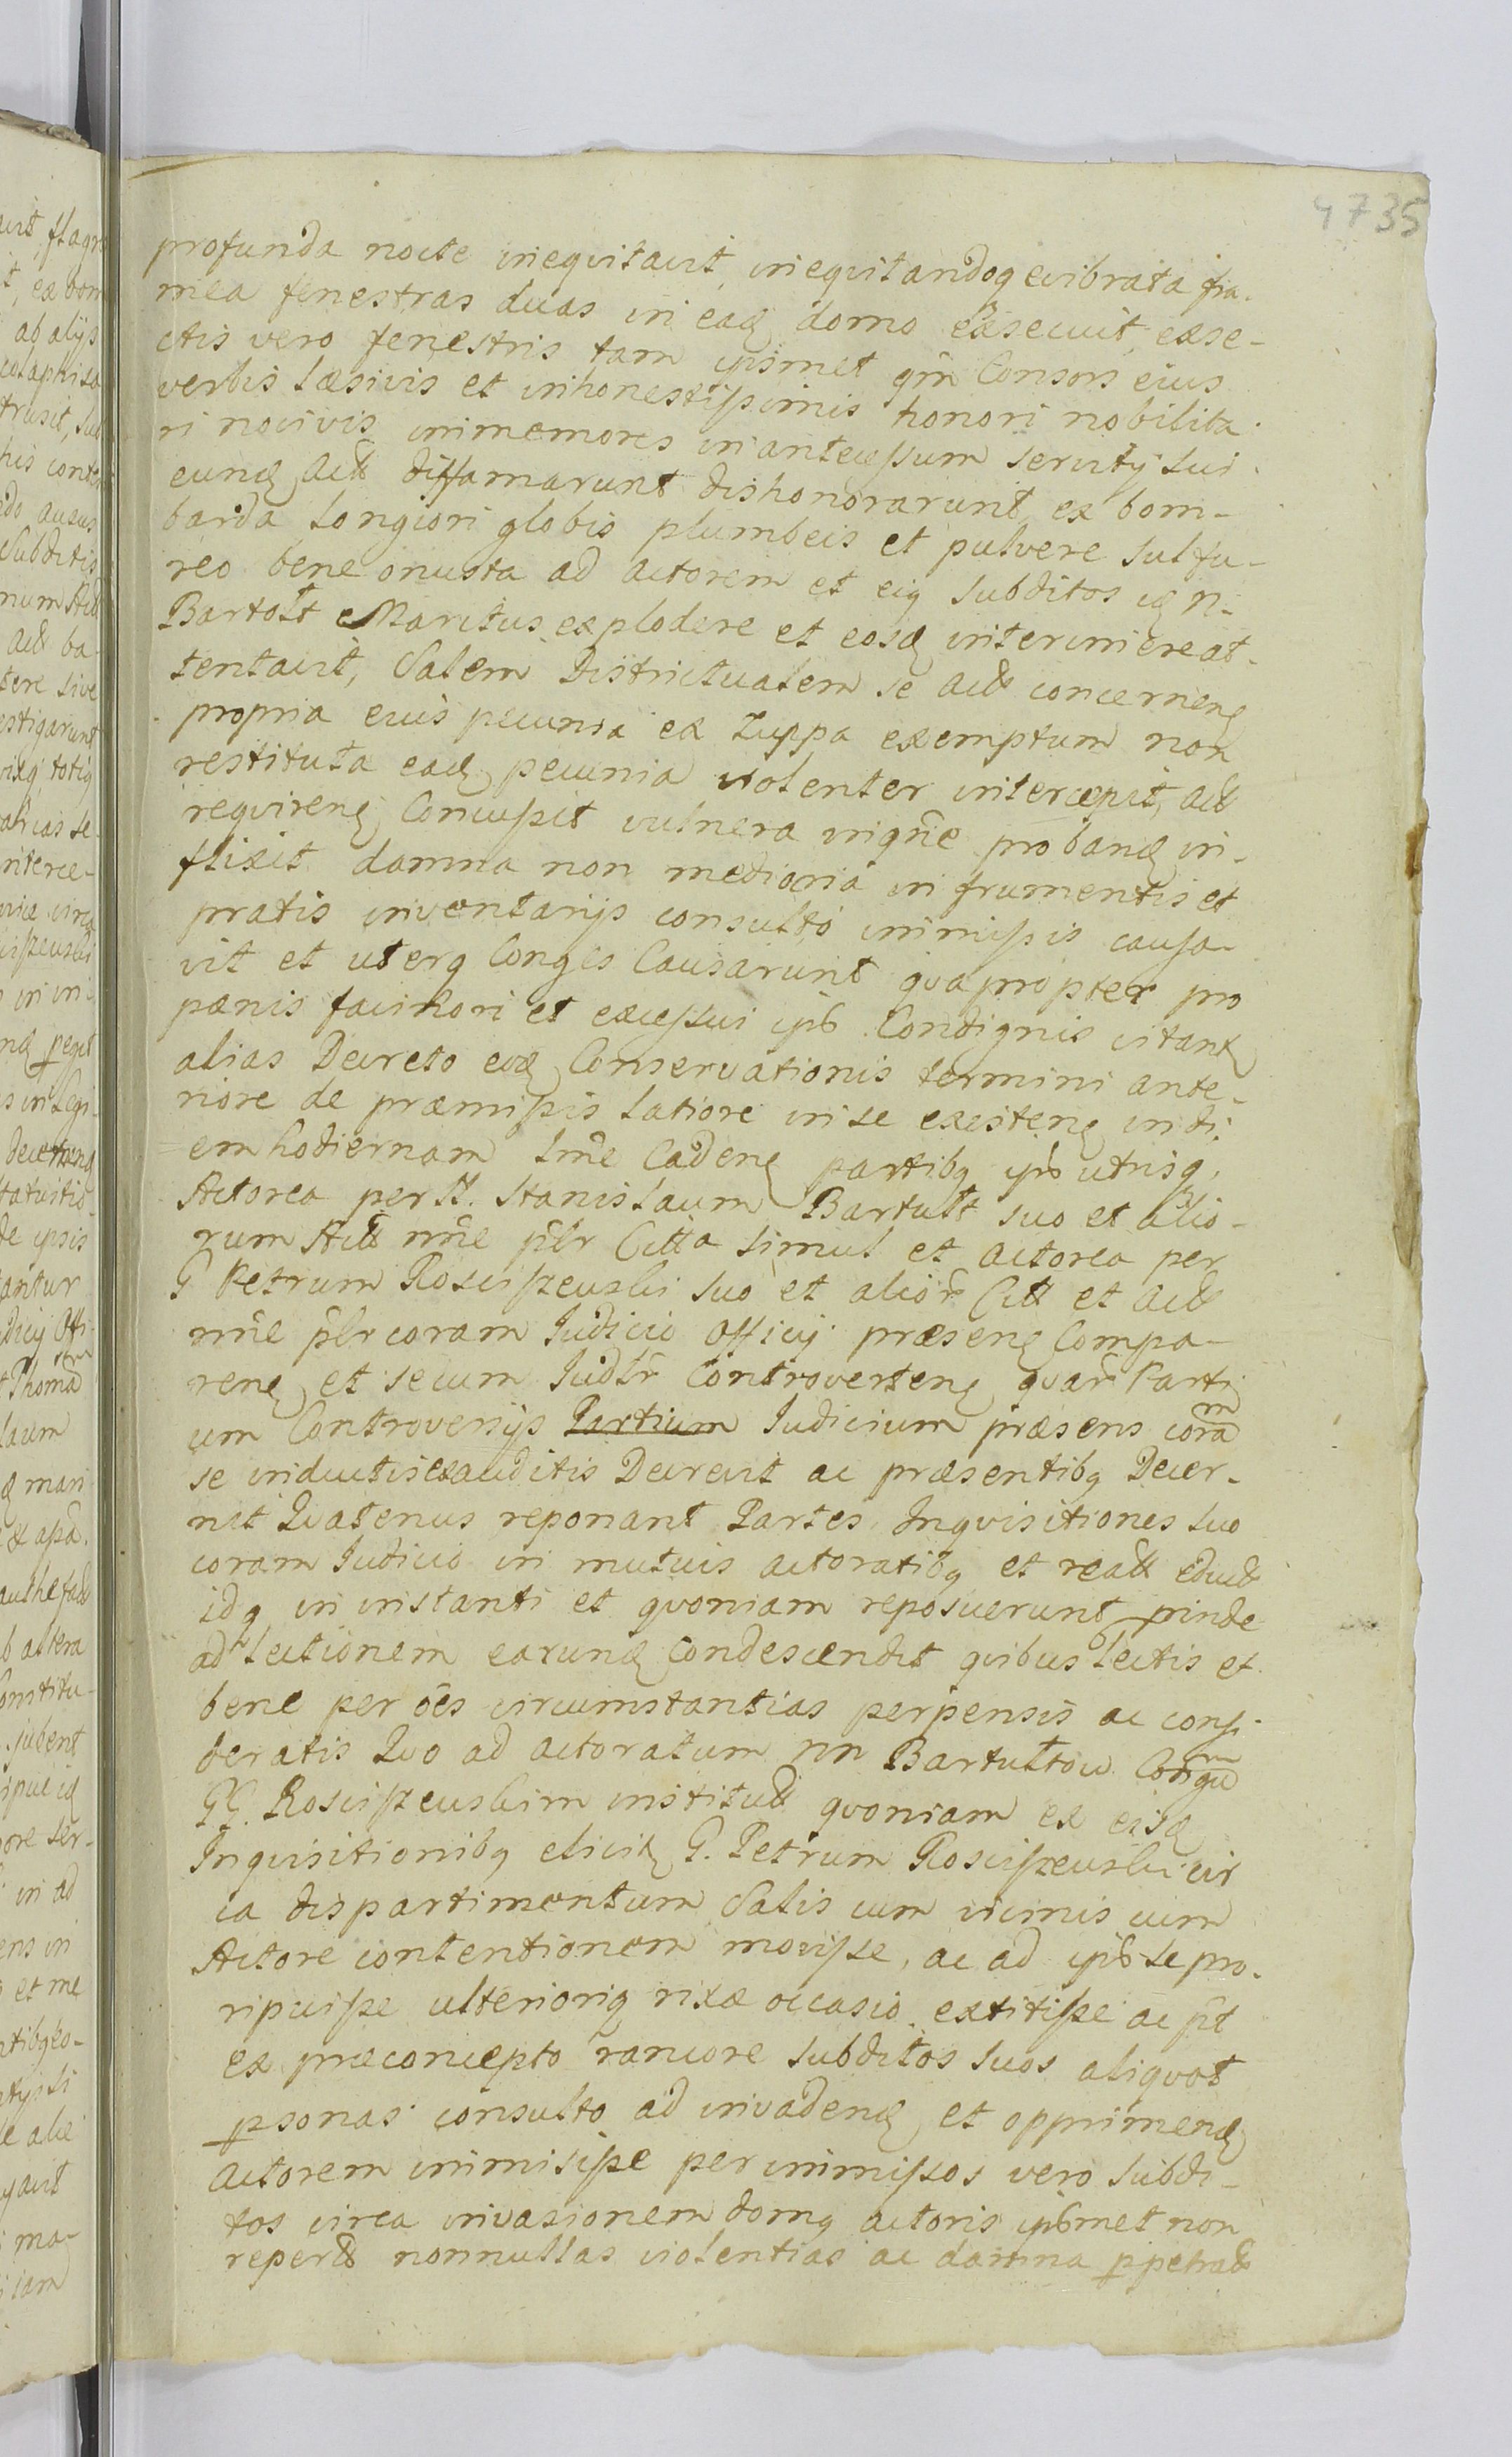 4735
profunda nocte inequitavit, inequitandoq evibrata fra-
mea fenestras duas in eadq domo exsecuit, exse-
ctis vero fenestris tam ipsimet qm Consors eius
verbis læsivis et inhonestissimis honori nobilita-
ri nocivis inimemores in antecessum servitij sui
eundq Act diffamarunt dishonorarunt, ex bom-
barda longiori globis plumbeis et pulvere sulfu-
reo bene onusta ad actorem et eiq subditos idq N.
Bartołt Maritus explodere et eosdq interimere at-
tentavit, Salem Districtualem se Act concernenq
propria eius pecunia ex Zuppa exemptum non
restituta eadq pecunia violenter intercepit, Act
requirenq Concussit vulnera inqñe probandq in-
flixit damna non mediocria in frumentis et
pratis inventarijs consultó immissis causa-
vit et uterq Conges Causarunt quapropter pro
pænis facinori et excessui ipß Condignis citantq
alias Decreto eodq Conservationis termini ante-
riore de præmissis latiore in se existenq in di-
em hodiernam lme Cadenq partibq ipß utrisq,
Actorea per N. Stanislaum Bartułt suo et alio-
rum Act nñe plr Citta simul et actorea per
G Petrum Rosciszewski suo et alior Citt et Act
nñe plr coram Iudicio Officij præsenq Compa-
renq et secum Iudlr Controvertenq quar Parti
um Controversijs Partium Iudicium præsens corã
se inductis exauditis Decrevit ac præsentibq Decer-
nit Quatenus reponant Partes Inqvisitiones suo
coram Iudicio in mutuis actoratibq et reatt educt
idq in instanti et qvoniam reposuerunt proinde
ad lectionem earundq condescendit qvibus lectis et
bene per ões circumstantias perpensis ac consi-
deratis Quo ad actoratum NN Bartułtow Congũ
GG. Rosciszewskim institutt qvoniam ex eisdq
Inqvisitionibq elicitq G. Petrum Rosciszewski cir
ca dispartimentum Salis cum vicinis cum
Actore contentionem movisse, ac ad ipß se pro-
ripuisse ulteriorisq rixæ occasio extitisse ac plt
ex præconcepto rancore subditos suos aliqvot
psonas consulto ad invadendq et opprimendq
Actorem immisisse per immissos vero subdi-
tos circa invasionem domq actoris ipßmet non
repertt nonnullas violentias ac damna ppetratt